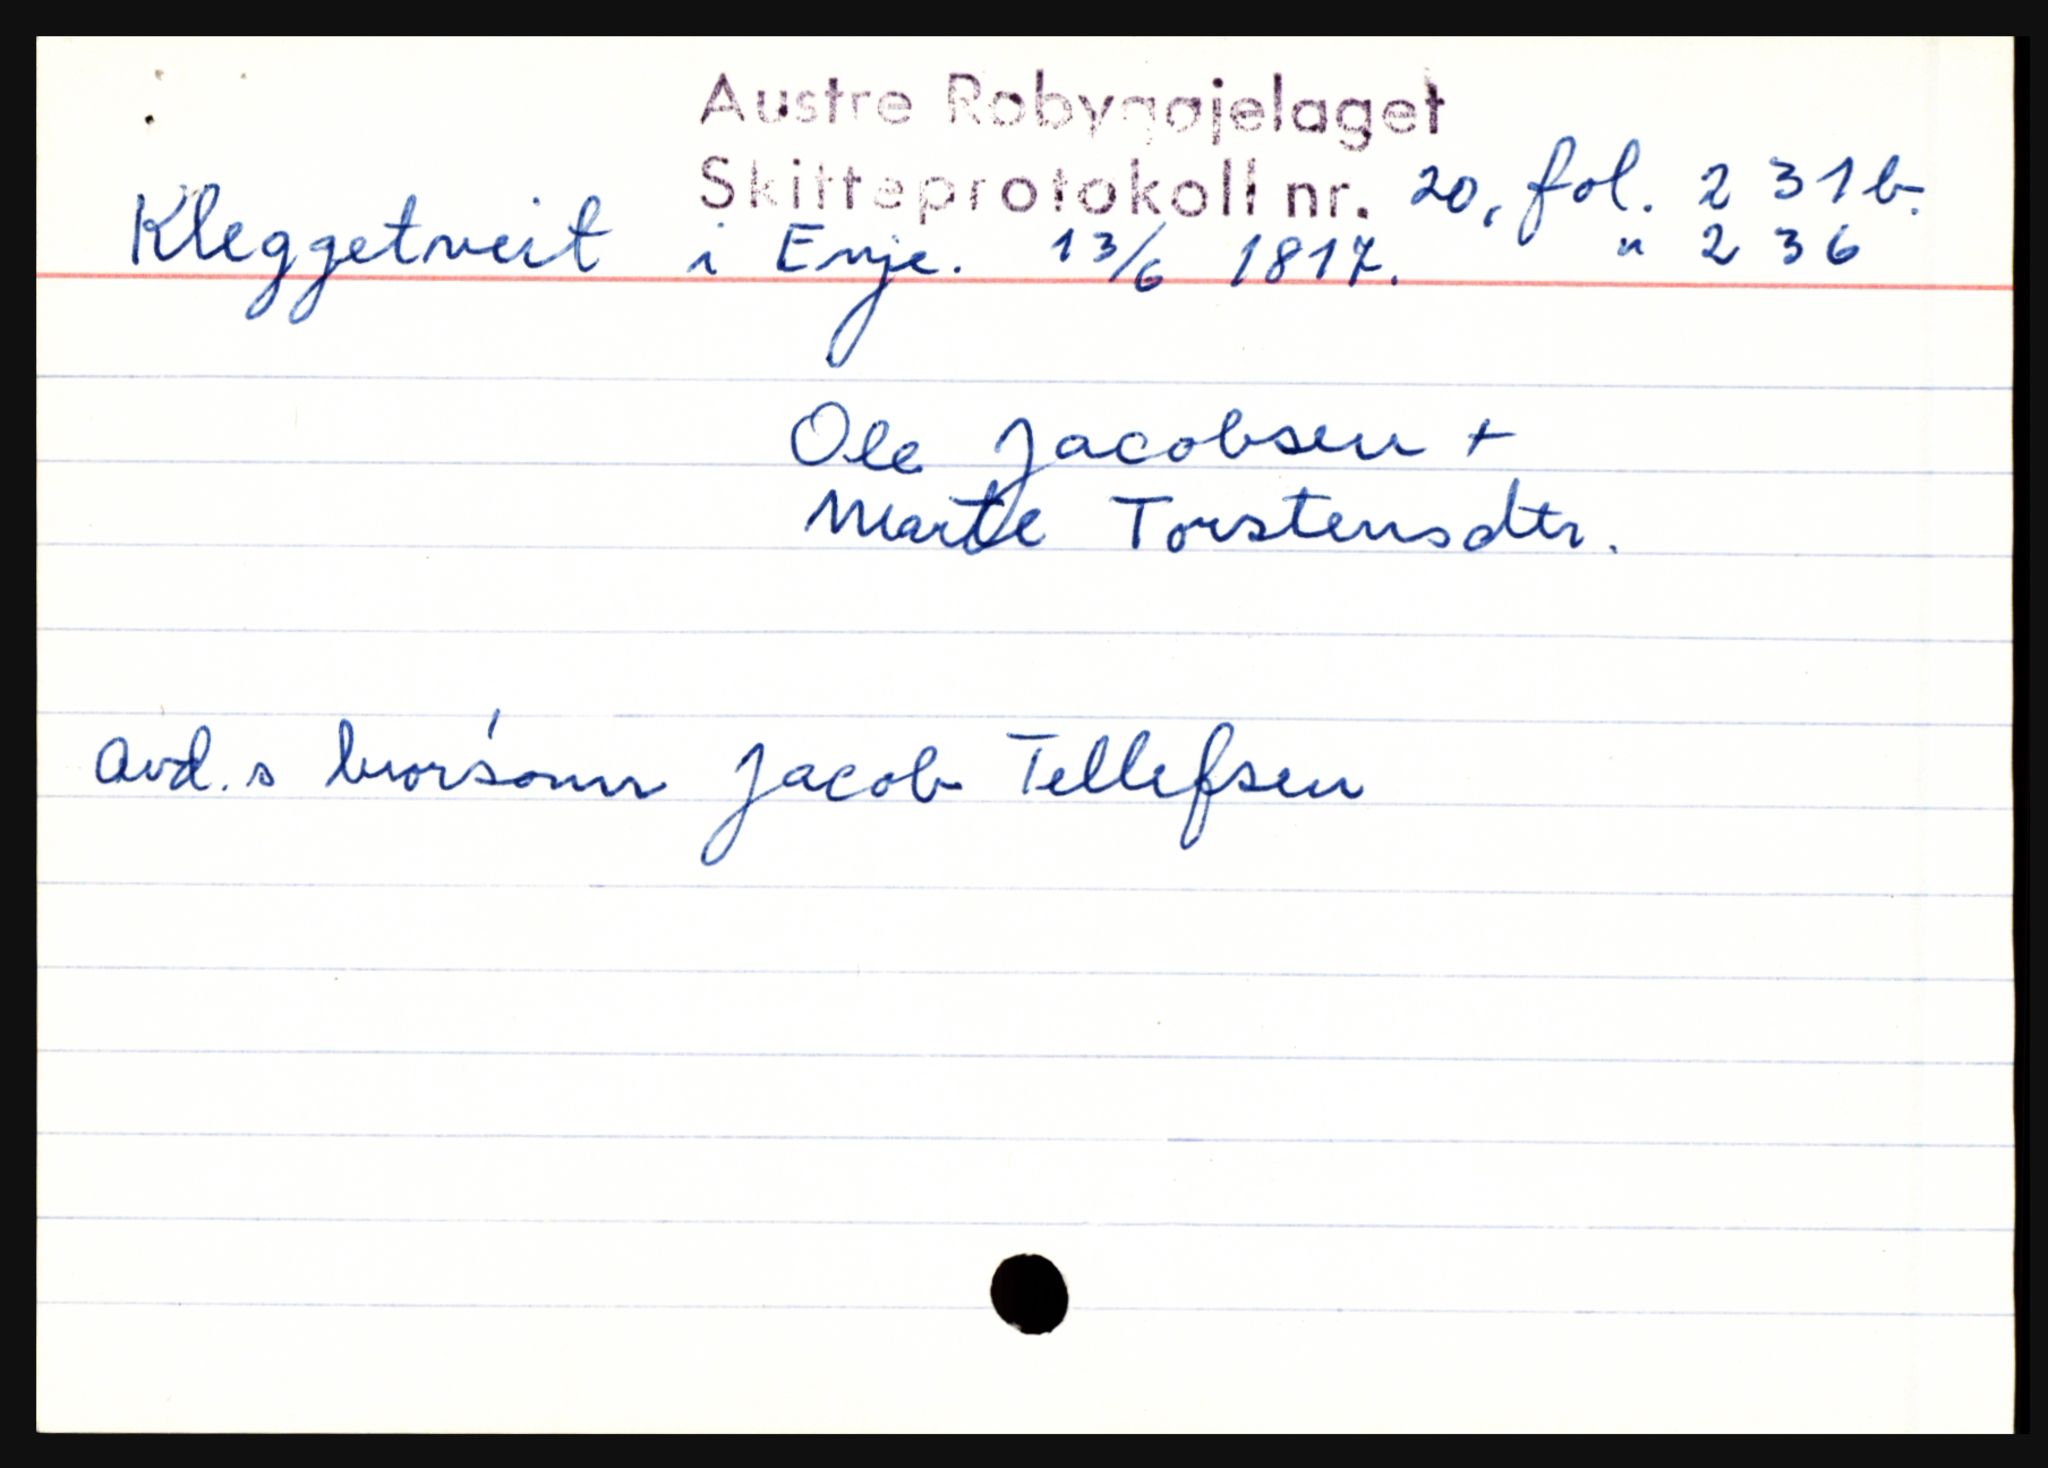 Austre Robyggjelaget
Skifteprotokoll nr. 20, fol. 231b.
Kleggetveit i Evje. 13/6 1817. " 236
Ole Jacobsen +
Marte Torstensdtr.
Avd.s brorsønn Jacob Tellefsen